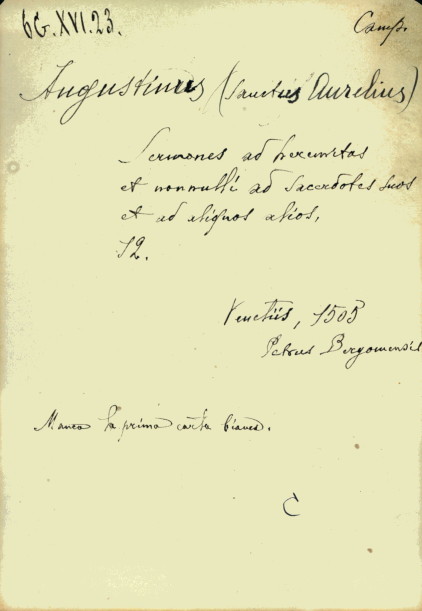 6G.XVI.23.
Camp.
Augustinus (Sanctus Aurelius)
Sermones ad heremitas
et nonnulli ad sacerdotes suos
et ad aliquos alios,
12.
Venetiis, 1505
Petrus Bergomensis
Manca la prima carta bianca.
C